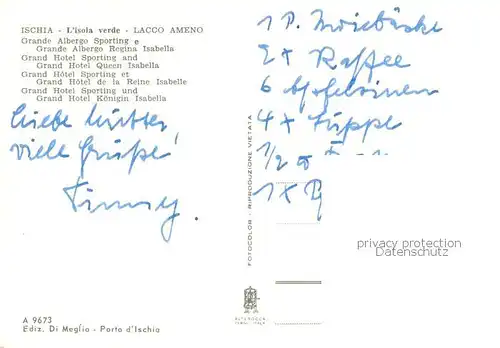 ISCHIA - L'isola verde - LACCO AMENO
Grande Albergo Sporting e
Grande Albergo Regina Isabella
Grand Hotel Sporting and
Grand Hotel Queen Isabella
Grand Hôtel Sporting et
Grand Hôtel de la Reine Isabelle
Grand Hotel Sporting und
Grand Hotel Königin Isabella
Liebe Mutter,
viele Grüße!
A 9673
Ediz. Di Meglio - Porto d'Ischia
FOTOCOLOR - RIPRODUZIONE VIETATA
1 P. Zwiebäcke
2 x Kaffee
6 Apfelsinen
4 x Suppe
1/2
1 x
privacy protection
Datenschutz